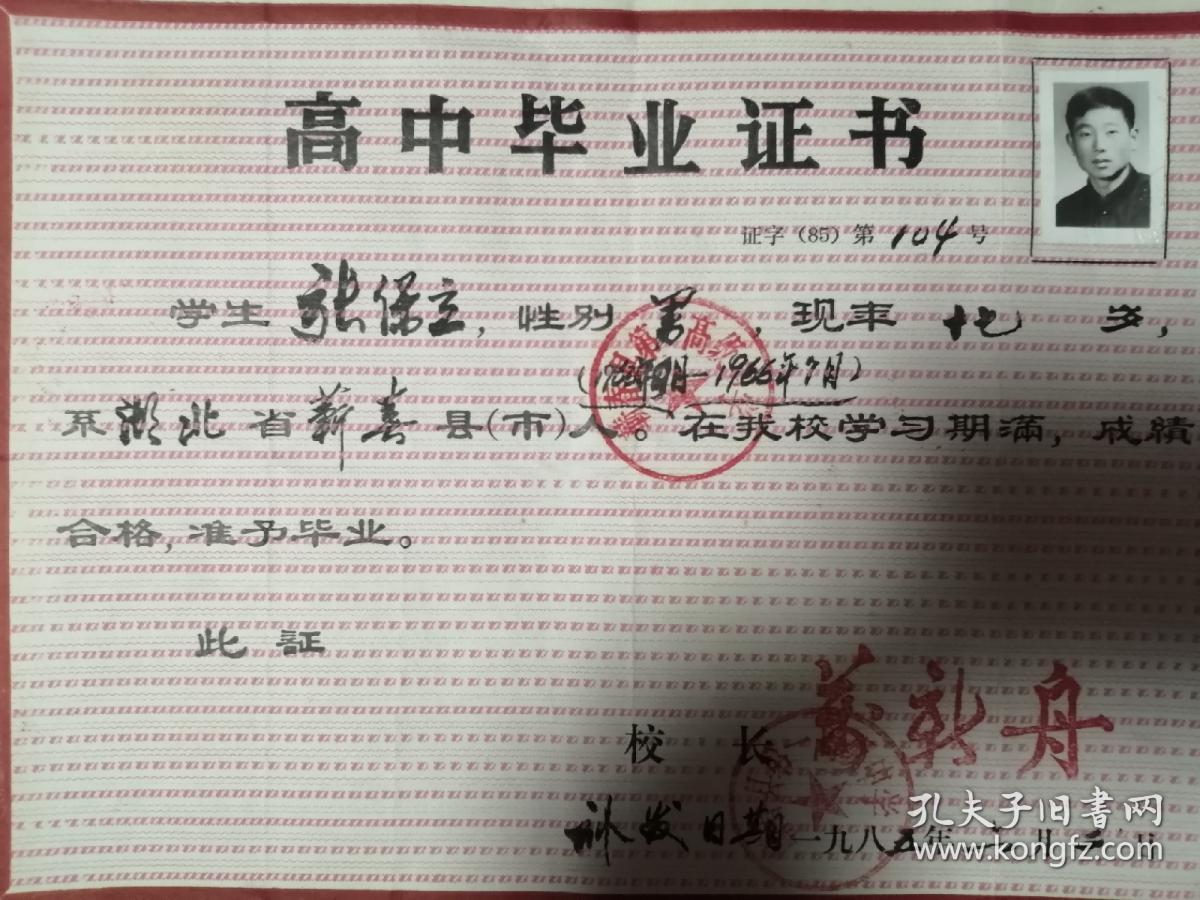 高中毕业证书
证字（85）第104号
学生 张保立，性别 男，现年 十七 岁，
1966年7月）
系 湖北 省 蕲春 县（市）人。在我校学习期满，成績
合格，准予毕业。
此証
校长 万新舟
补发日期 一九八五年
孔夫子旧书网
www.kongfz.com